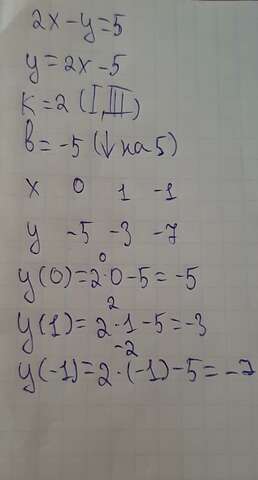 2x-y=5
y=2x-5
к=2 (I, III)
в=-5 (↓ на 5)
x 0 1 -1
y -5 -3 -7
0
y(0)=2·0-5=-5
2
y(1)=2·1-5=-3
-2
y(-1)=2·(-1)-5=-7